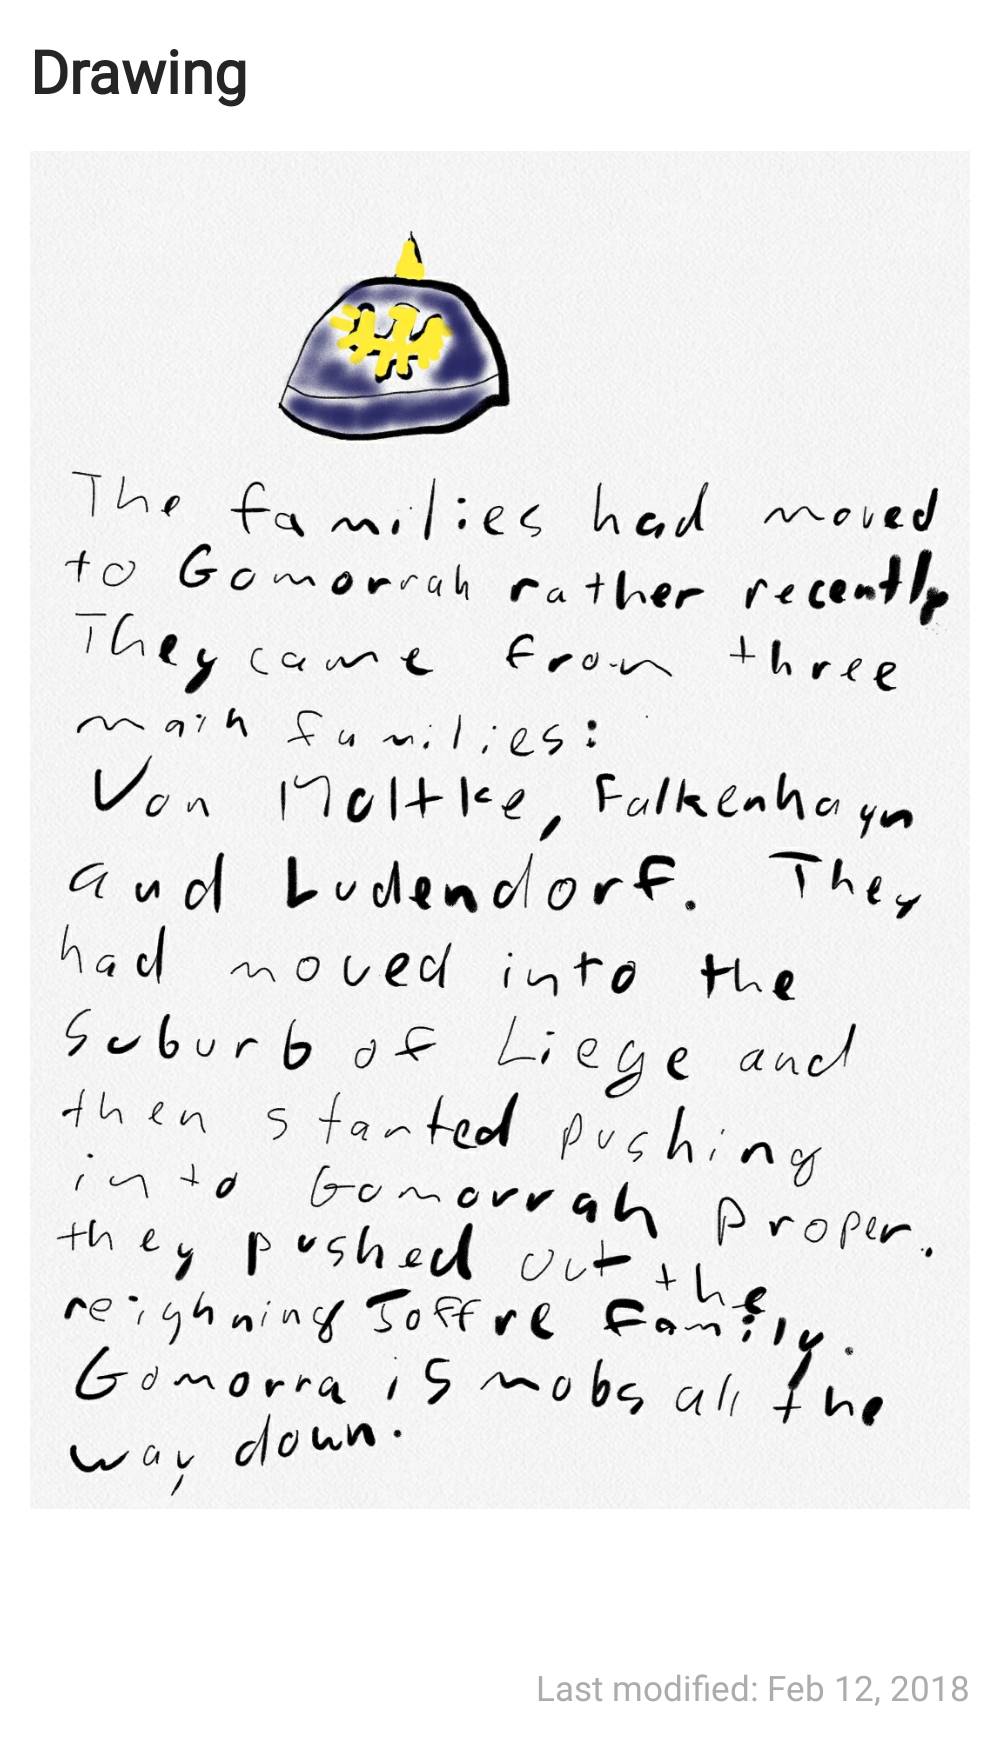 Drawing
The families had moved
to Gomorrah rather recently
They came from three
main families:
Von Moltke, Falkenhayn
and Ludendorf. They
had moved into the
suburb of Liege and
then started pushing
into Gomorrah proper.
they pushed out the
reighning Joffre family.
Gomorra is mobs all the
way down.
Last modified: Feb 12, 2018